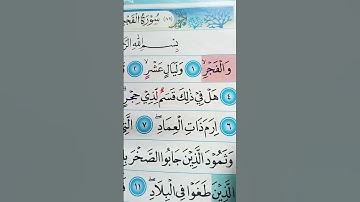 (٨٩) سُورَةُ الْفَجْرِ
بِسْمِ اللهِ
وَالْفَجْرِ ۙ ١ وَلَيَالٍ عَشْرٍ ۙ ٢
٤ هَلْ فِيْ ذٰلِكَ قَسَمٌ لِّذِيْ حِجْرٍ
٦ اِرَمَ ذَاتِ الْعِمَادِ ۖ ٧ الَّتِيْ
وَثَمُوْدَ الَّذِيْنَ جَابُوا الصَّخْرَ
الَّذِيْنَ طَغَوْا فِي الْبِلَادِ ۖ ١١